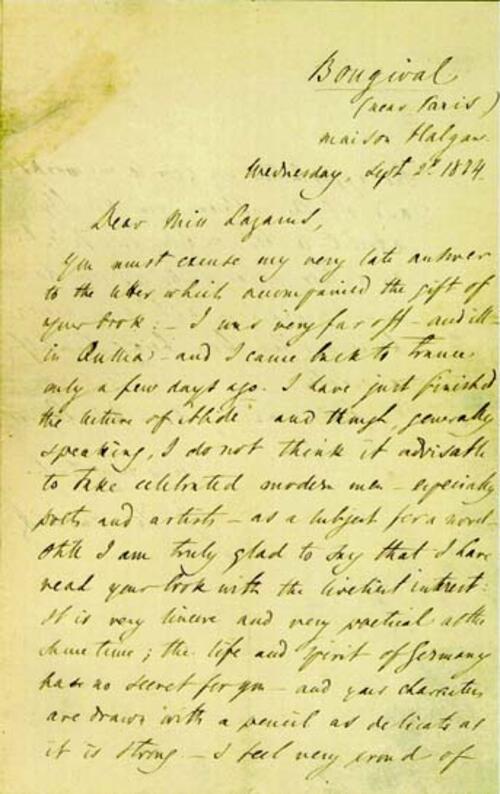 Bougival
(near Paris)
maison Halgan
Wednesday, Sept. 2d 1874.
Dear Miss Lazarus,
You must excuse my very late answer
to the letter which accompanied the gift of
your book: – I was very far off – and ill –
in Russia – and I came back to France
only a few days ago. I have just finished
the lecture of "Alide" and though, generally
speaking, I do not think it advisable
to take celebrated modern men – especially
poets and artists – as a subject for a novel –
still I am truly glad to say that I have
read your book with the liveliest interest:
It is very sincere and very poetical at the
same time; the life and spirit of Germany
have no secret for you – and your characters
are drawn with a pencil as delicate as
it is strong. – I feel very proud of